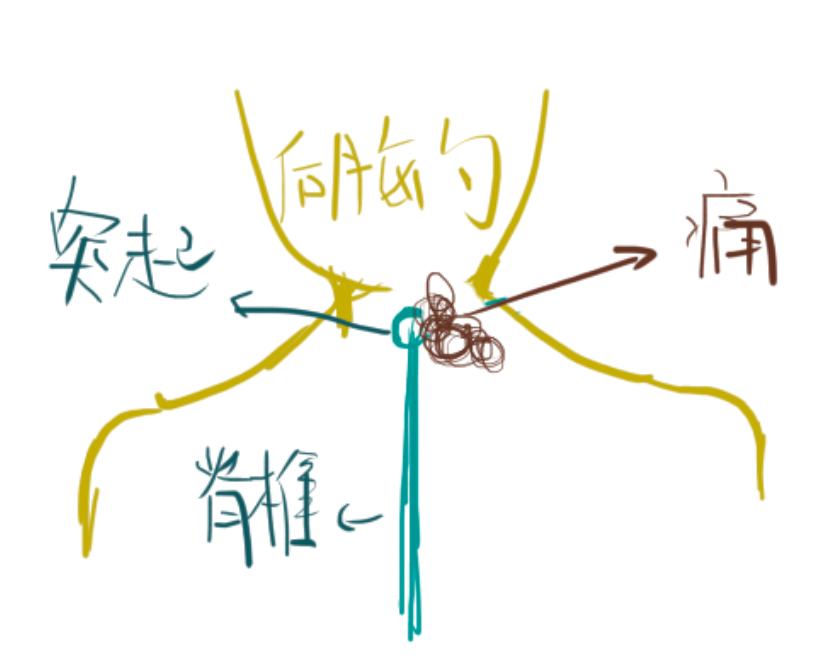 后脑勺
突起
痛
脊椎